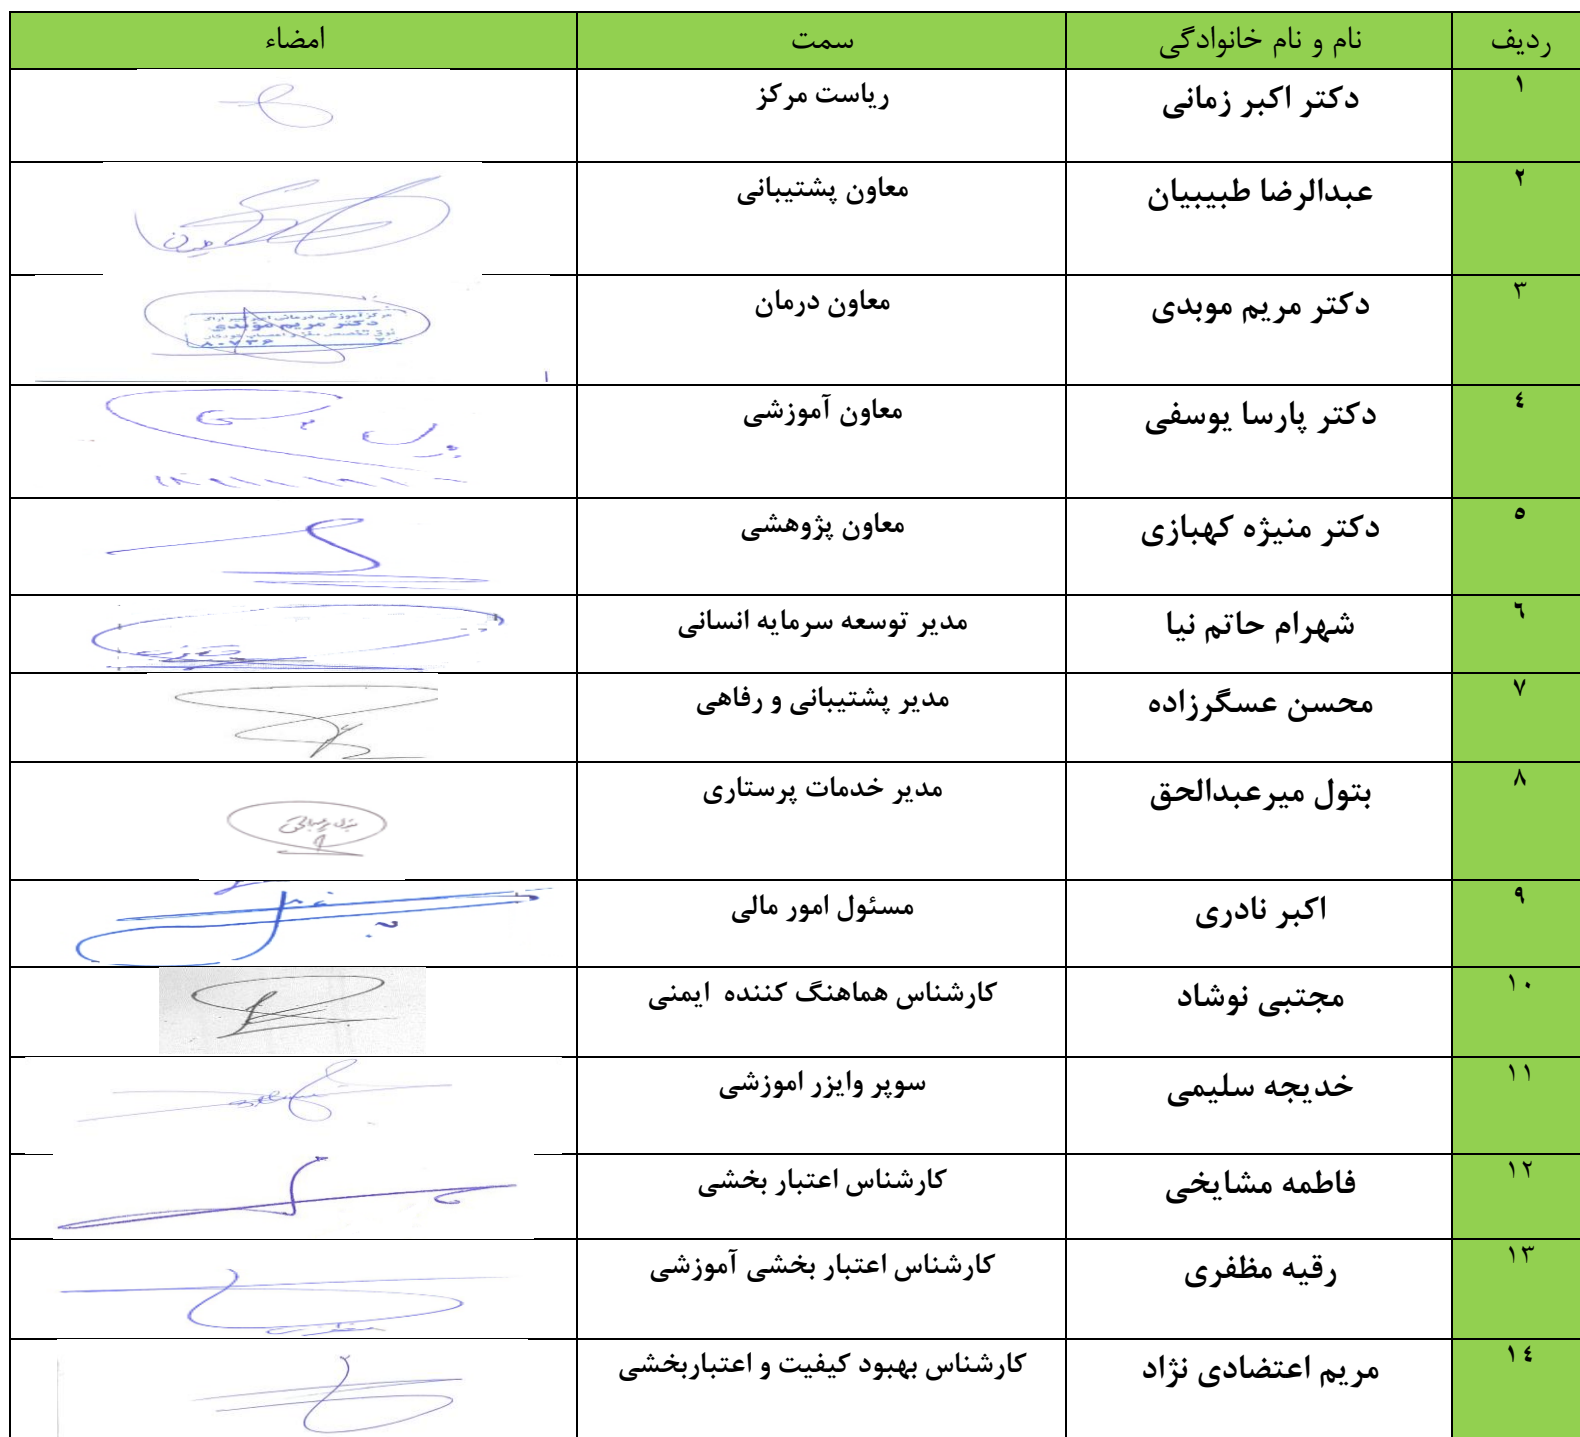 ردیف نام و نام خانوادگی سمت امضاء
۱ دکتر اکبر زمانی ریاست مرکز
۲ عبدالرضا طبیبیان معاون پشتیبانی
۳ دکتر مریم موبدی معاون درمان
مرکز آموزشی درمانی امیرکبیر اراک
دکتر مریم موبدی
فوق تخصص مغز و اعصاب کودکان
۸۰۷۳۶
٤ دکتر پارسا یوسفی معاون آموزشی
٥ دکتر منیژه کهبازی معاون پژوهشی
٦ شهرام حاتم نیا مدیر توسعه سرمایه انسانی
۷ محسن عسگرزاده مدیر پشتیبانی و رفاهی
۸ بتول میرعبدالحق مدیر خدمات پرستاری
۹ اکبر نادری مسئول امور مالی
۱۰ مجتبی نوشاد کارشناس هماهنگ کننده ایمنی
۱۱ خدیجه سلیمی سوپر وایزر اموزشی
۱۲ فاطمه مشایخی کارشناس اعتبار بخشی
۱۳ رقیه مظفری کارشناس اعتبار بخشی آموزشی
۱٤ مریم اعتضادی نژاد کارشناس بهبود کیفیت و اعتباربخشی